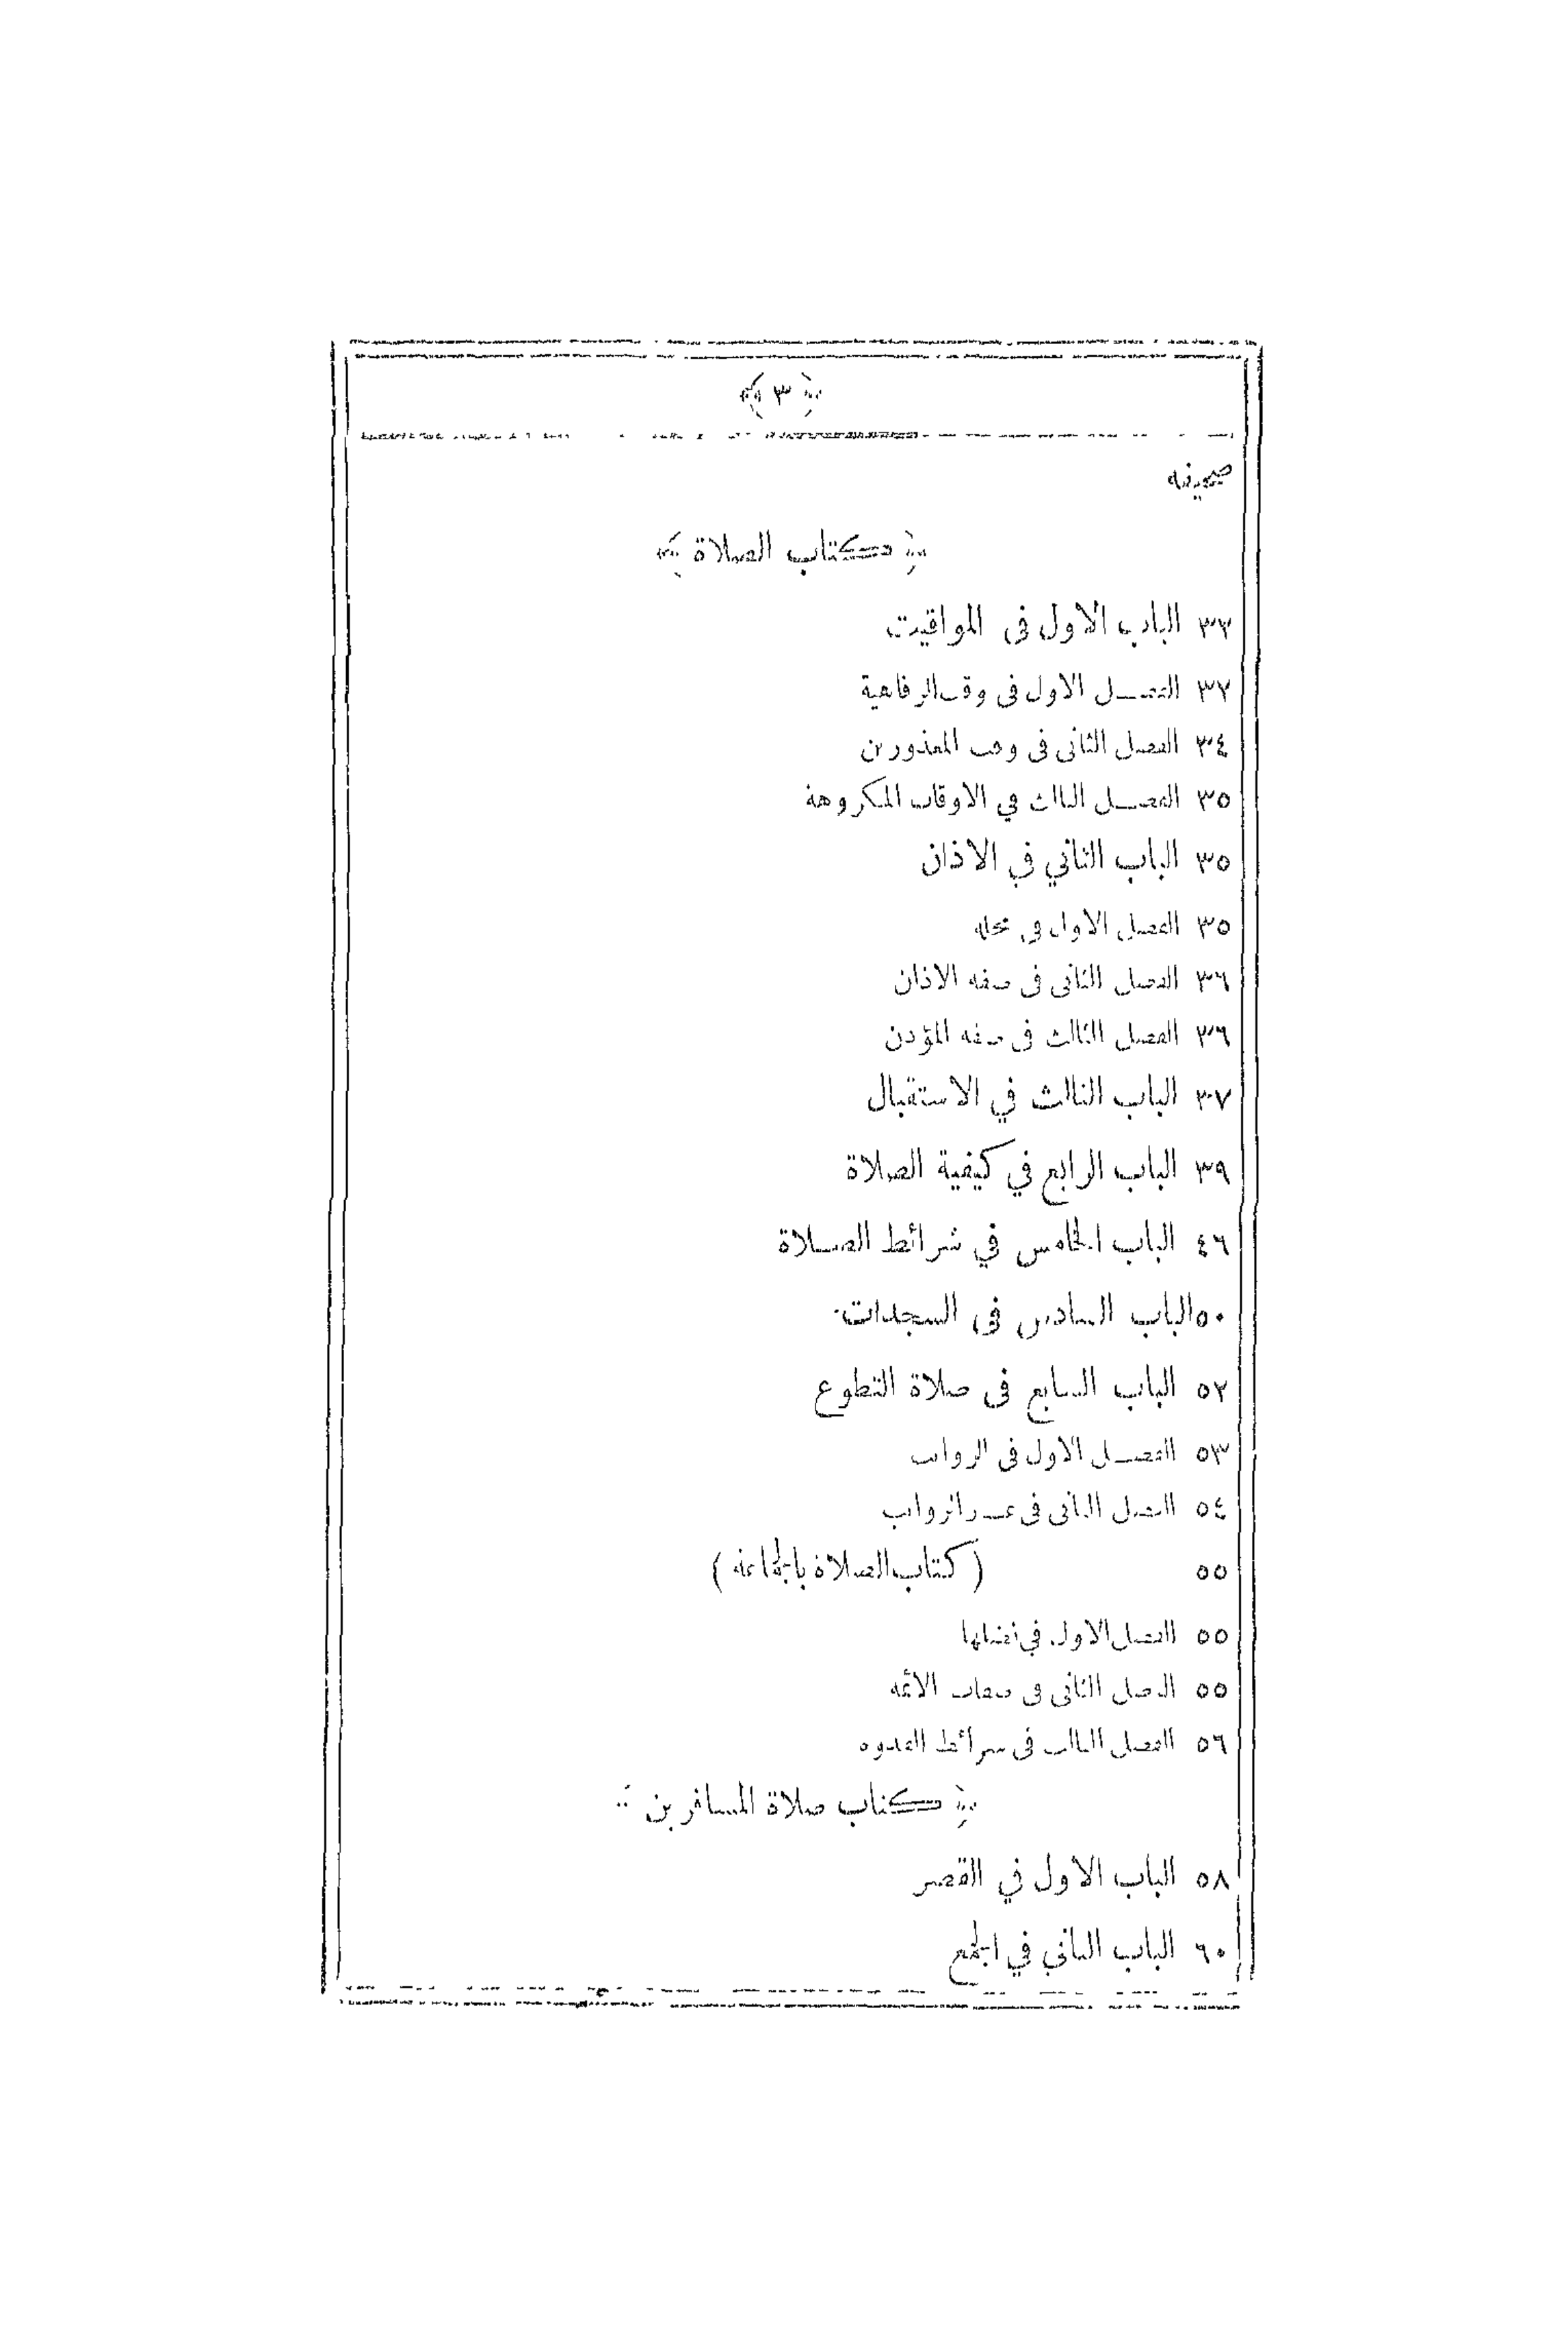 ﴿ ٣ ﴾
صحيفه
﴿ كتاب الصلاة ﴾
٣٣ الباب الاول فى المواقيت
٣٧ الفصل الاول فى وقت الرفاهية
٣٤ الفصل الثانى فى وقت المعذورين
٣٥ الفصل الثالث في الاوقات المكروهة
٣٥ الباب الثاني في الاذان
٣٥ الفصل الاول في محله
٣٦ الفصل الثانى فى صفه الاذان
٣٦ الفصل الثالث فى صفه المؤذن
٣٧ الباب الثالث في الاستقبال
٣٩ الباب الرابع في كيفية الصلاة
٤٦ الباب الخامس في شرائط الصلاة
٥٠ الباب السادس فى السجدات
٥٢ الباب السابع فى صلاة التطوع
٥٣ الفصل الاول فى الرواتب
٥٤ الفصل الثانى فى غير الرواتب
٥٥ ( كتاب الصلاة بالجماعه )
٥٥ الفصل الاول في فضلها
٥٥ الفصل الثانى فى صفات الائمه
٥٦ الفصل الثالث فى شرائط القدوه
﴿ كتاب صلاة المسافرين
٥٨ الباب الاول في القصر
٦٠ الباب الثاني في الجمع